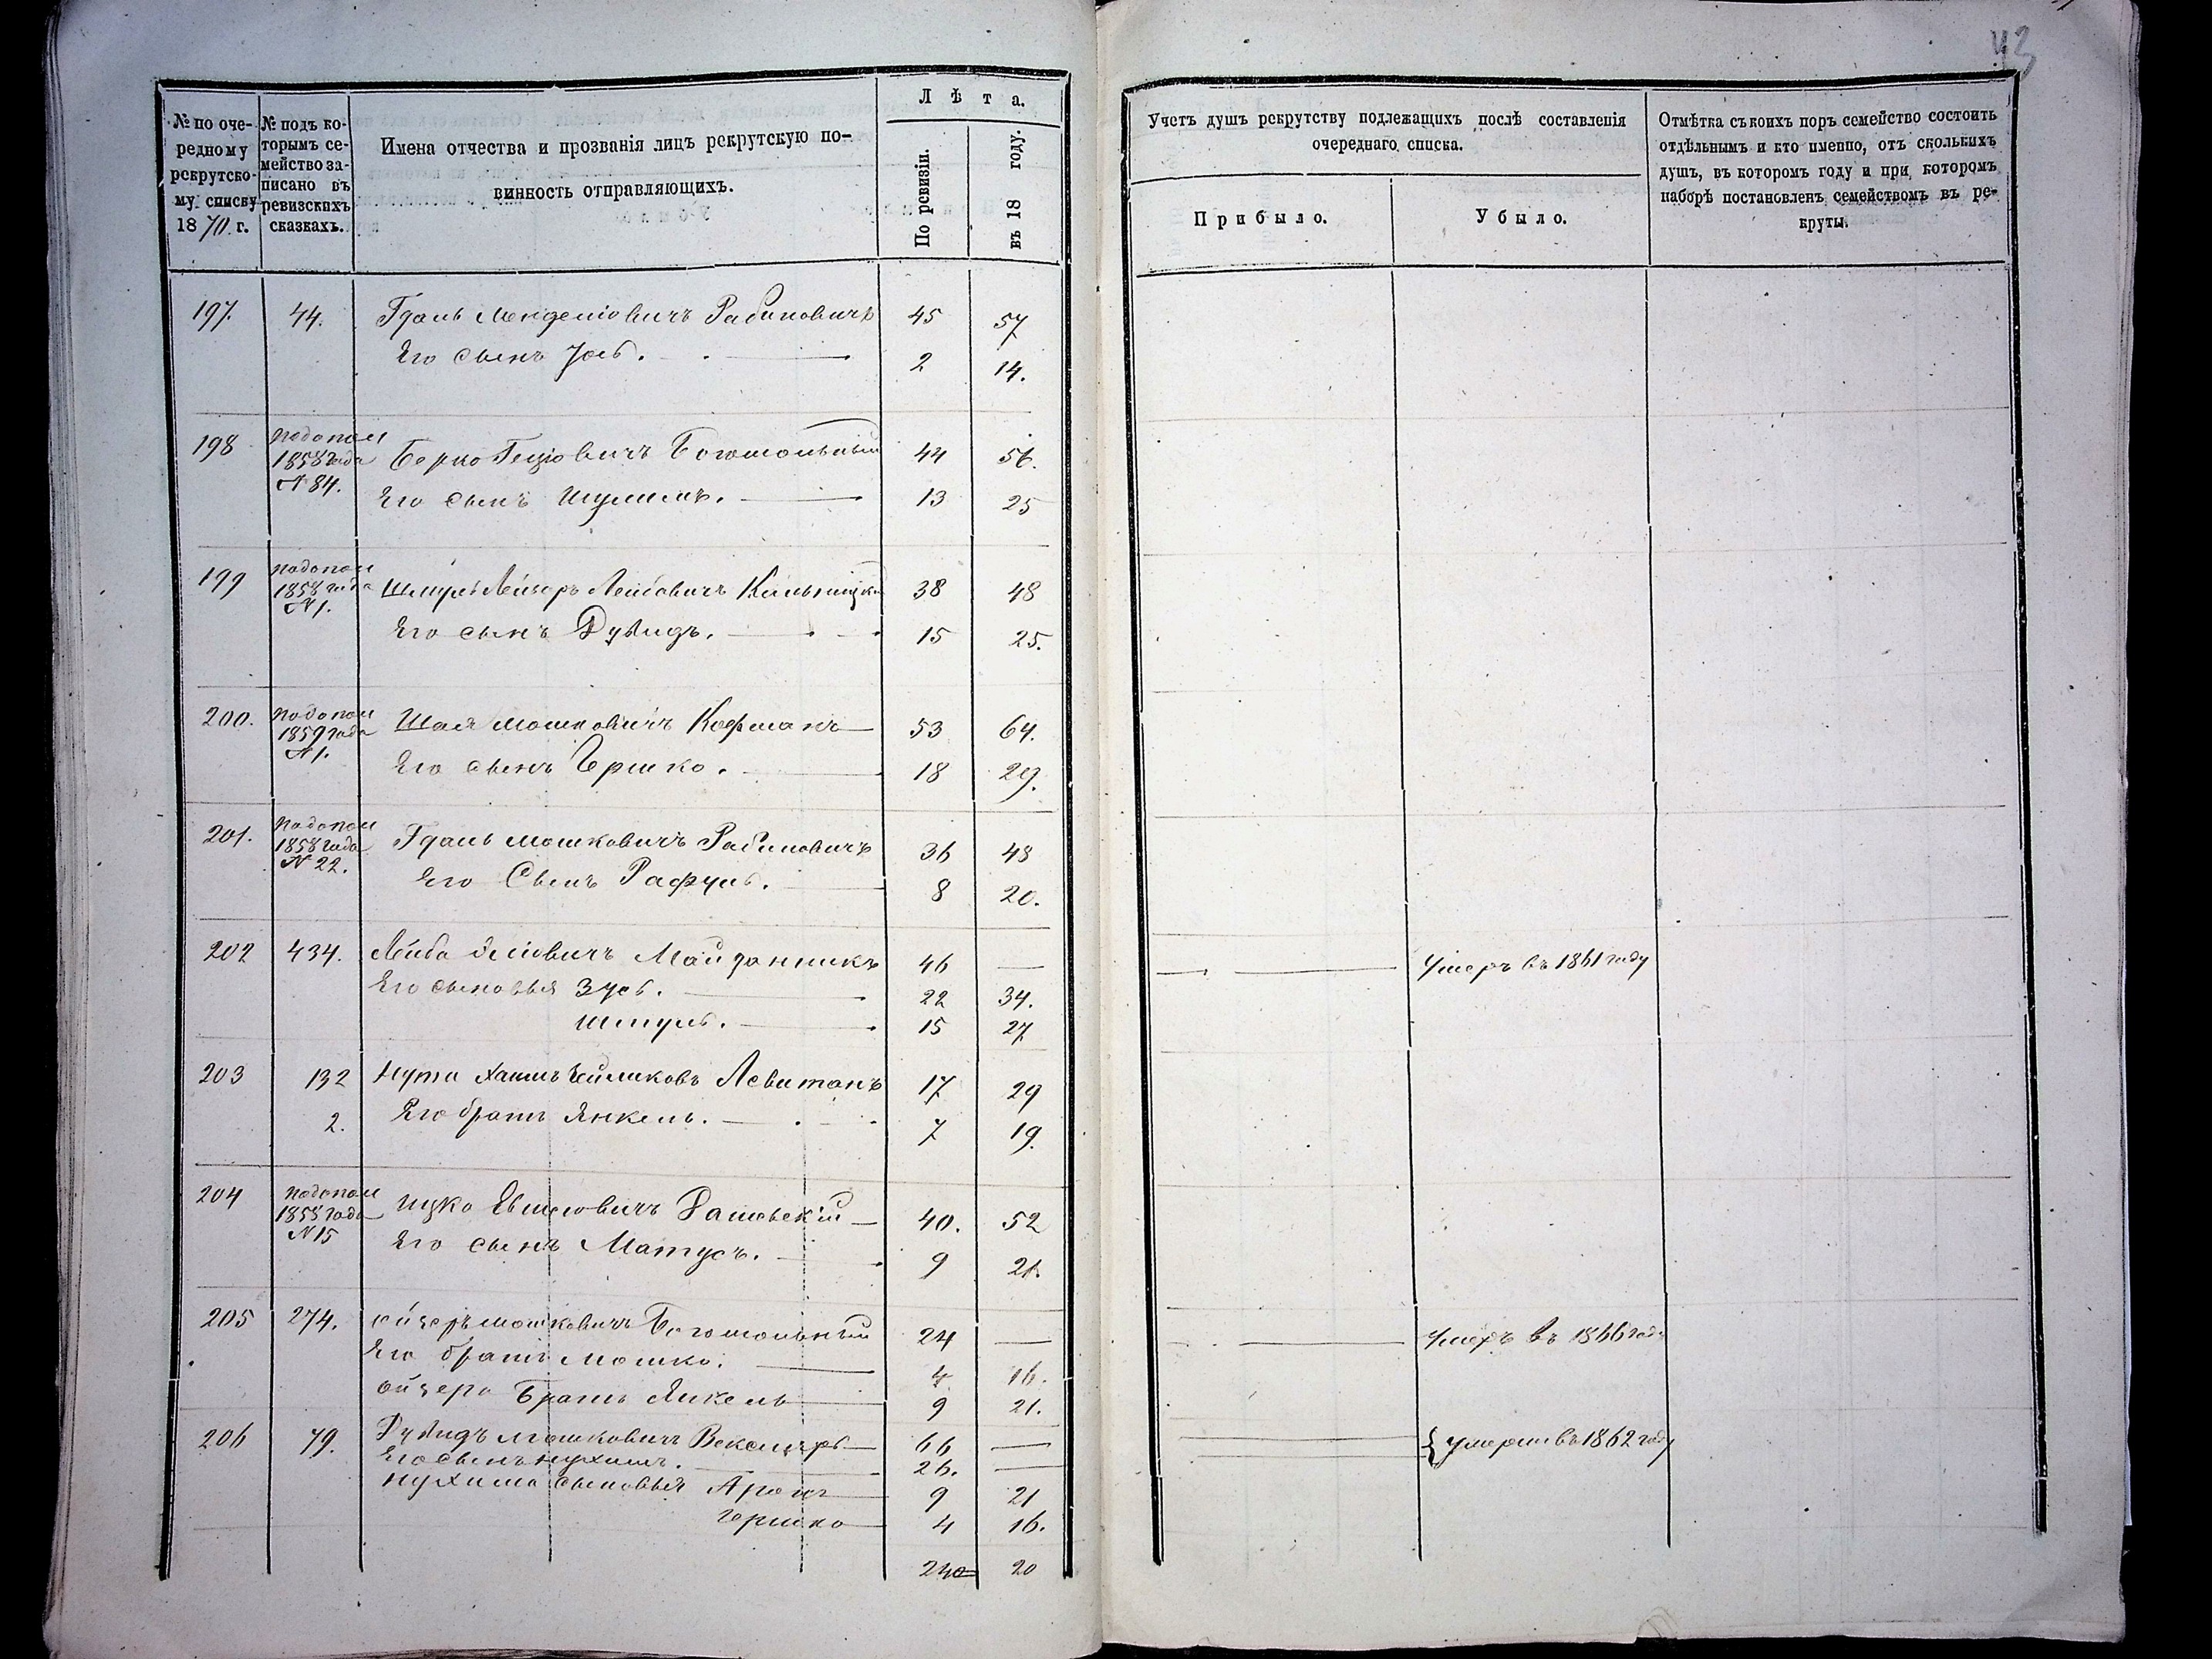 43
№ по оче-
редному
рекрутско-
му списку
1870 г.
№ подъ ко-
торымъ се-
мейство за-
писано въ
ревизскихъ
сказкахъ.
Имена отчества и прозванія лицъ рекрутскую по-
винность отправляющихъ.
Лѣта.
По ревизіи.
въ 18 году.
Учетъ душъ рекрутству подлежащихъ послѣ составленія
очереднаго списка.
Прибыло.
Убыло.
Отмѣтка съ коихъ поръ семейство состоитъ
отдѣльнымъ и кто именно, отъ сколькихъ
душъ, въ которомъ году и при которомъ
наборѣ постановленъ семействомъ въ ре-
круты.
197. 44. Гдаль Менделіовичъ Рабиновичъ 45 57
Его сынъ Іось. 2 14.
198 подопол
1858 года
N 84.
Берко Гецовичъ Богомольный 44 56.
Его сынъ Шулимъ. 13 25
199 подопол
1858 года
N 1.
Шмуль Лейзеръ Лейбовичъ 38 48
Его сынъ Дувидъ. 15 25.
200. подопол
1859 года
N 1.
Шая Мошковичъ Кофманъ 53 64.
Его сынъ Гершко. 18 29.
201. подопол
1858 года
N 22.
Гдаль Мошковичъ Рабиновичъ 36 48
Его Сынъ Рафуль. 8 20.
202 434. Лейба Майданникъ 46 — Умеръ въ 1861 году
Его сыновья Зусь. 22 34.
Шмуль. 15 27
203 132 Нута Хаимъ Левитанъ 17 29
2. Его братъ Янкель. 7 19.
204 подопол
1858 года
N 15
Ицко Евшіовичъ Рашевскій 40. 52
Его сынъ Матусъ. 9 21.
205 274. Ойзеръ Мошковичъ Богомольный 24 — Умеръ въ 1866 году
Его братъ Мошко. 4 16.
Ойзера Братъ Янкель 9 21.
206 79. Дувидъ Мошковичъ Векслеръ 66 — { умерли въ 1862 году
Его сынъ Нухимъ. 26. —
Нухима сыновья Аронъ 9 21
Гершко 4 16.
240 20